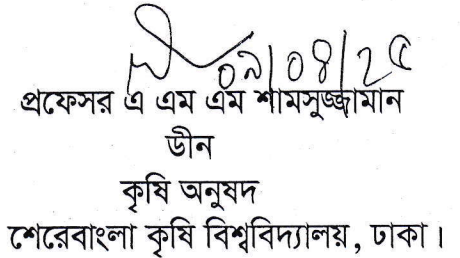 ০৯/০৪/২৫
প্রফেসর এ এম এম শামসুজ্জামান
ডীন
কৃষি অনুষদ
শেরেবাংলা কৃষি বিশ্ববিদ্যালয়, ঢাকা।